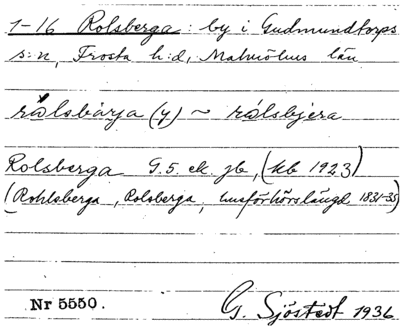 1-16 Rolsberga: by i Gudmundtorps
s:n, Frosta h:d, Malmöhus län
rålsbärja (y) ~ rålsbjera
Rolsberga G.5. ek. jb, (kb 1923)
(Rohlsberga, Rolsberga, husförhörslängd 1831-35)
Nr 5550.
G. Sjöstedt 1936